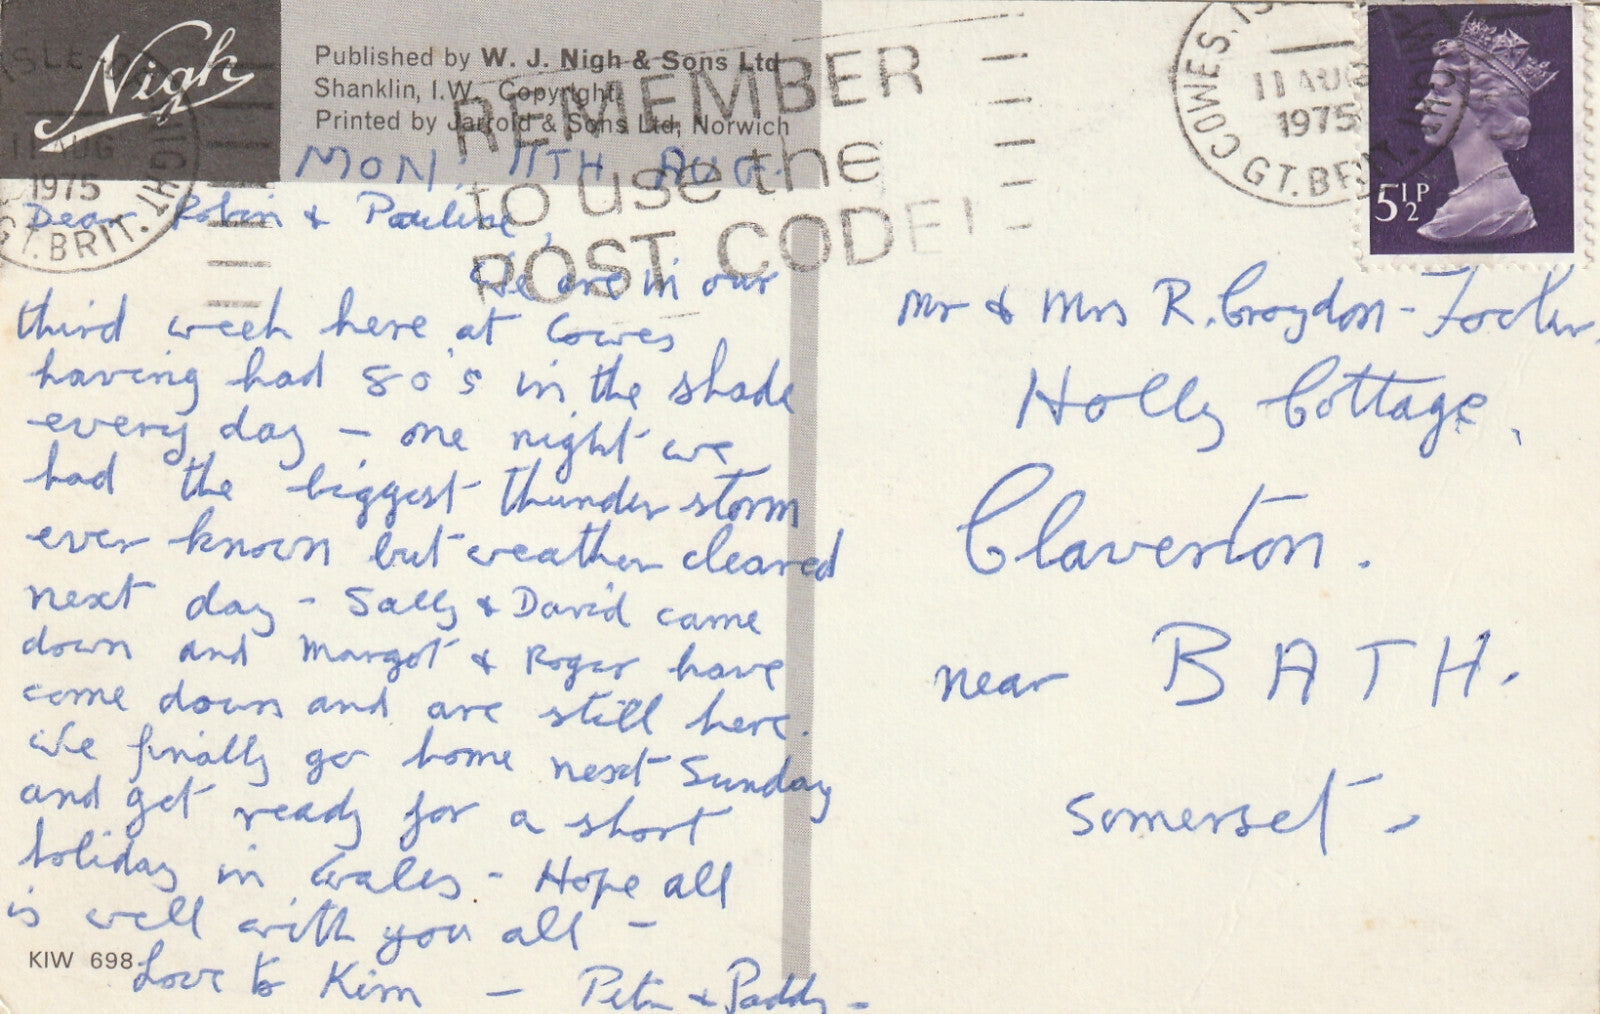 Nigh
Published by W. J. Nigh & Sons Ltd
Shanklin, I.W. Copyright.
Printed by Jarrold & Sons Ltd, Norwich
REMEMBER
to use the
POST CODE!
11 AUG
1975
GT. BRIT.
COWES.
11 AUG
1975
GT. BRIT.
5½P
MON. 11TH AUG.
Dear Robin & Pauline,
We are in our
third week here at Cowes
having had 80's in the shade
every day – one night we
had the biggest thunder storm
ever known but weather cleared
next day – Sally & David came
down and Margot & Roger have
come down and are still here.
We finally go home next Sunday
and get ready for a short
holiday in Wales – Hope all
is well with you all –
Love to Kim – Peter & Paddy –
KIW 698
Mr & Mrs R. Croydon-
Holly Cottage,
Claverton.
near BATH.
Somerset –